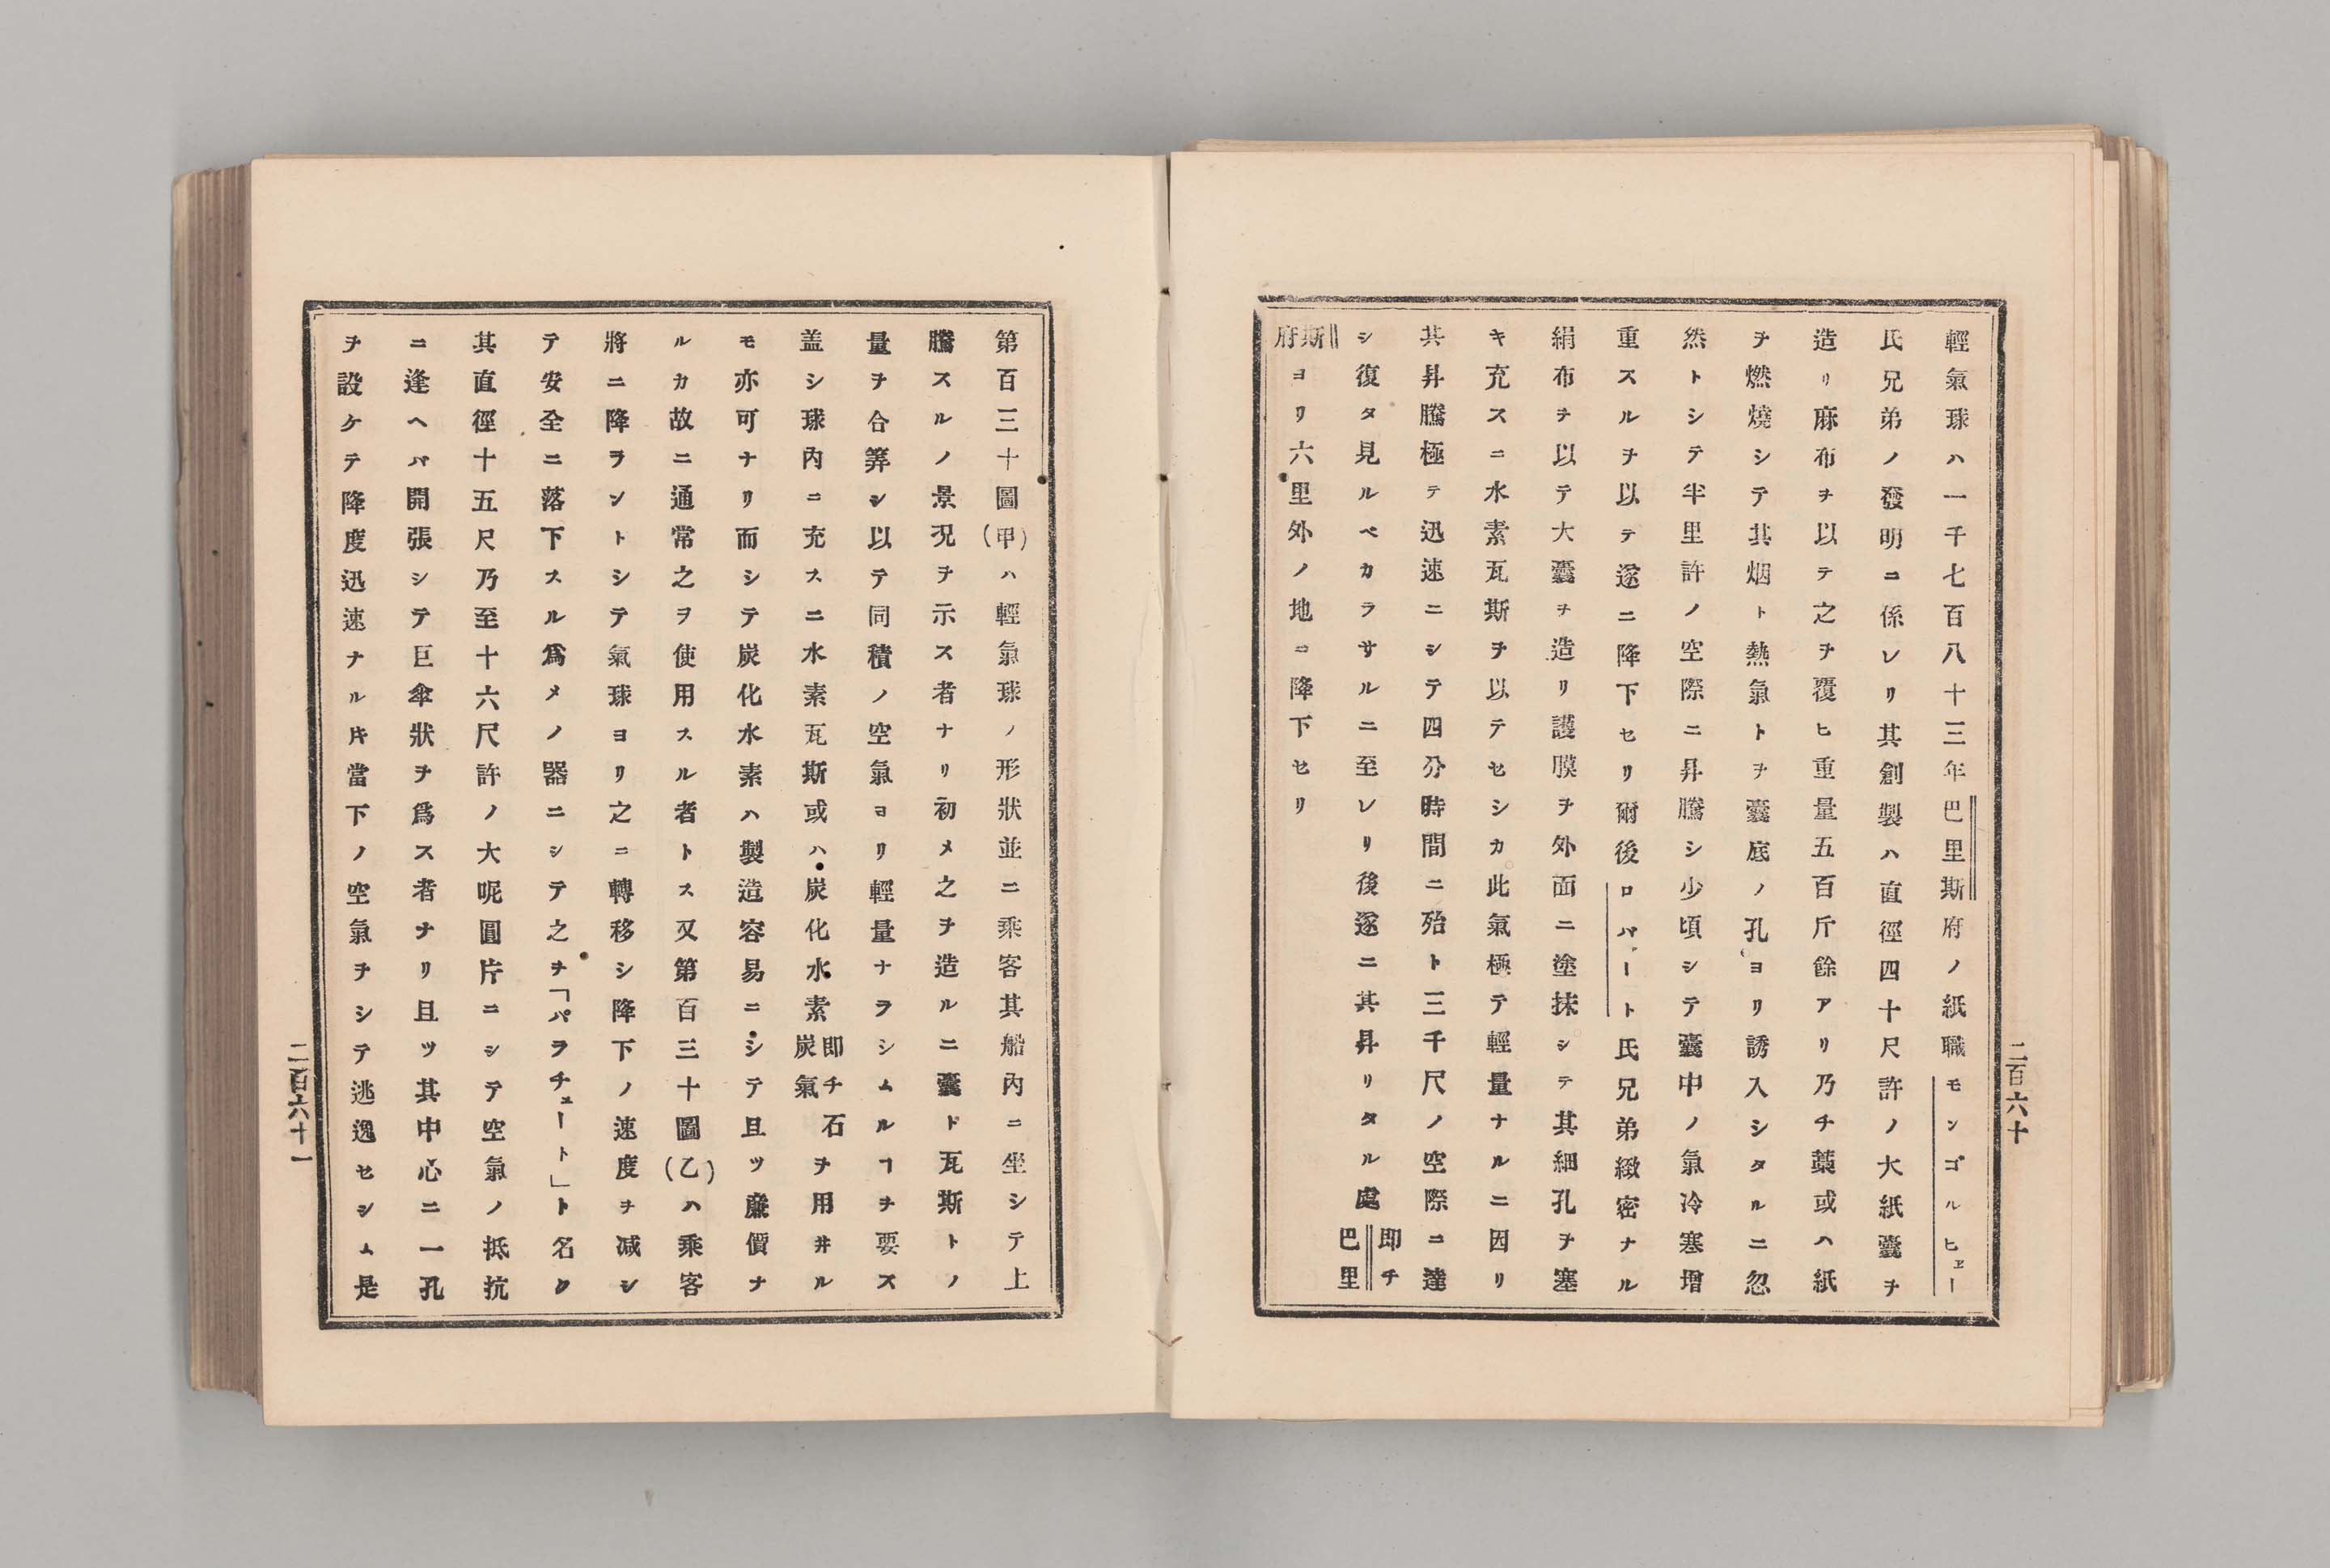 輕氣球ハ一千七百八十三年巴里斯府ノ紙職モンゴルヒェー
氏兄弟ノ發明ニ係レリ其創製ハ直徑四十尺許ノ大紙囊ヲ
造リ麻布ヲ以テ之ヲ覆ヒ重量五百斤餘アリ乃チ藁或ハ紙
ヲ燃燒シテ其烟ト熱氣トヲ囊底ノ孔ヨリ誘入シタルニ忽
然トシテ半里許ノ空際ニ昇騰シ少頃シテ囊中ノ氣冷塞增
重スルヲ以テ遂ニ降下セリ爾後ロバート氏兄弟緻密ナル
絹布ヲ以テ大囊ヲ造リ護膜ヲ外面ニ塗抹シテ其細孔ヲ塞
キ充スニ水素瓦斯ヲ以テセシカ此氣極テ輕量ナルニ因リ
其昇騰極テ迅速ニシテ四分時間ニ殆ト三千尺ノ空際ニ達
シ復タ見ルベカラサルニ至レリ後遂ニ其昇リタル處即チ巴里
斯府ヨリ六里外ノ地ニ降下セリ
二百六十
第百三十圖(甲)ハ輕氣球ノ形狀並ニ乘客其船內ニ坐シテ上
騰スルノ景況ヲ示ス者ナリ初メ之ヲ造ルニ囊ド瓦斯トノ
量ヲ合筭シ以テ同積ノ空氣ヨリ輕量ナラシムルヿヲ要ス
盖シ球內ニ充スニ水素瓦斯或ハ炭化水素即チ石炭氣ヲ用井ル
モ亦可ナリ而シテ炭化水素ハ製造容易ニシテ且ツ廉價ナ
ルカ故ニ通常之ヲ使用スル者トス又第百三十圖(乙)ハ乘客
將ニ降ヲントシテ氣球ヨリ之ニ轉移シ降下ノ速度ヲ减シ
テ安全ニ落下スル爲メノ器ニシテ之ヲ「パヲチュート」ト名ク
其直徑十五尺乃至十六尺許ノ大呢圓片ニシテ空氣ノ抵抗
ニ逢ヘバ開張シテ巨傘狀ヲ爲ス者ナリ且ツ其中心ニ一孔
ヲ設ケテ降度迅速ナルキ當下ノ空氣ヲシテ逃逸セシム是
二百六十一